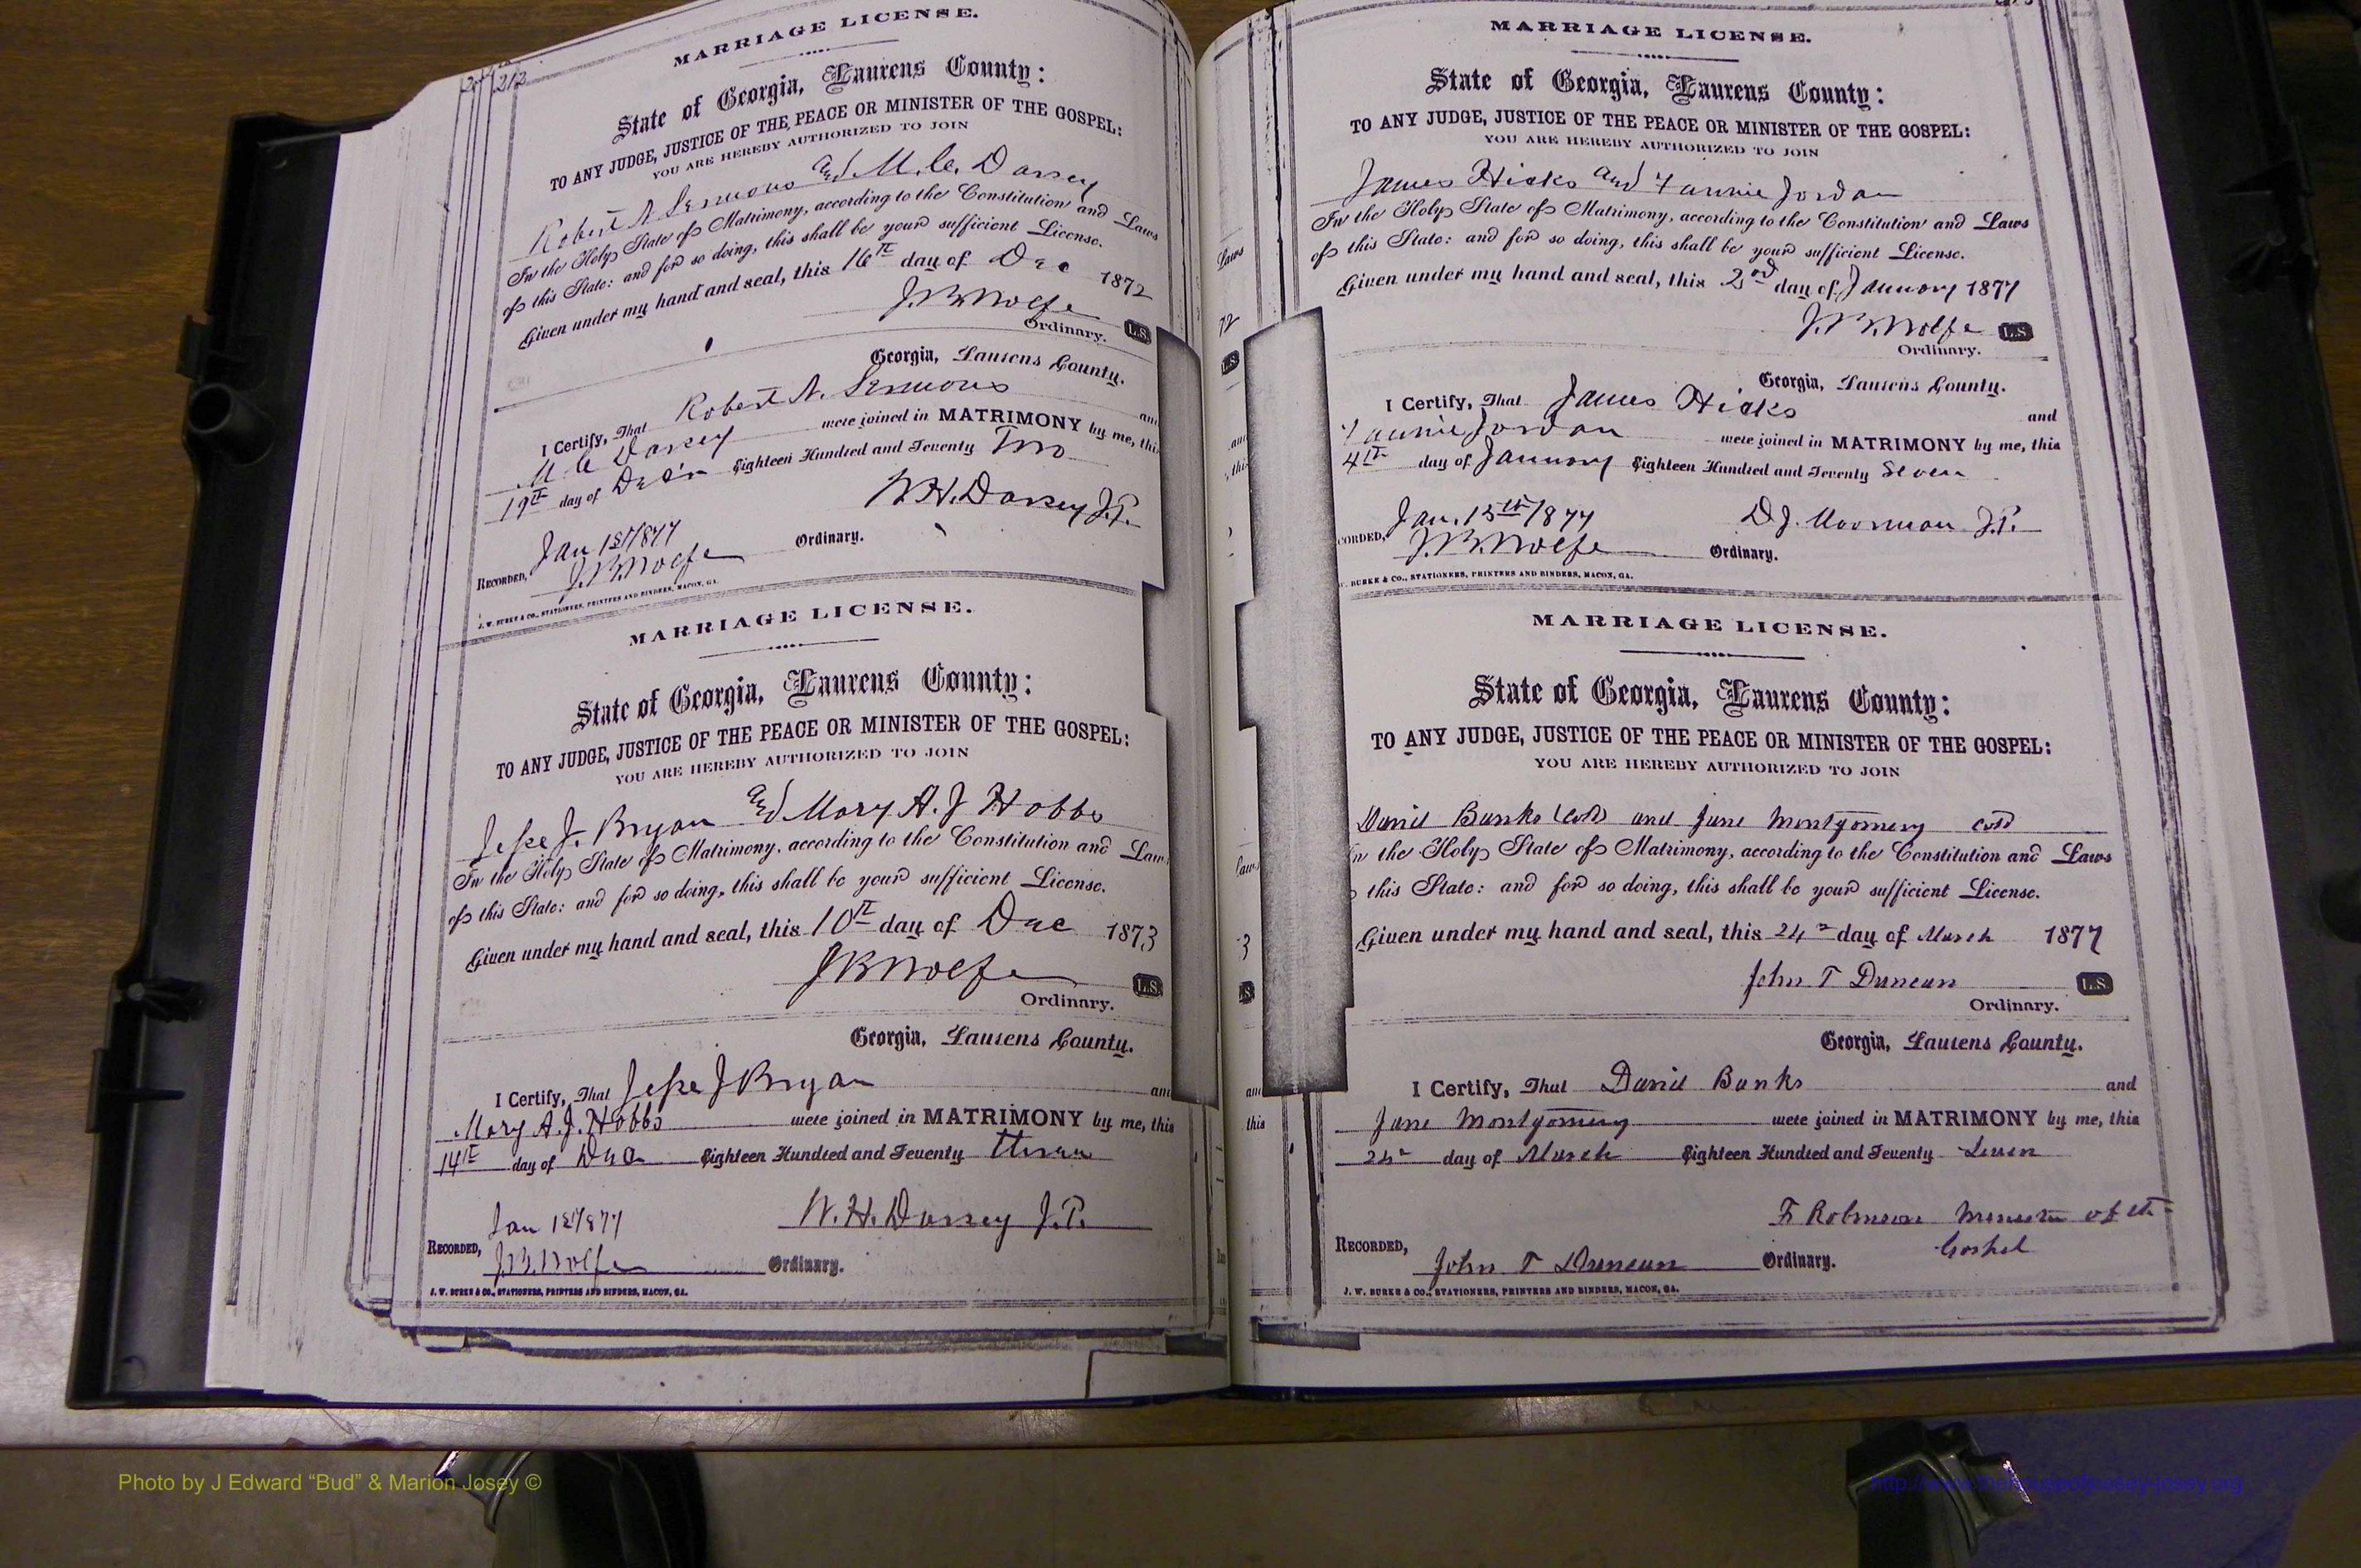 212
MARRIAGE LICENSE.
State of Georgia, Laurens County:
TO ANY JUDGE, JUSTICE OF THE PEACE OR MINISTER OF THE GOSPEL:
YOU ARE HEREBY AUTHORIZED TO JOIN
Robert N. Semmons and M. C. Dorsey
In the Holy State of Matrimony, according to the Constitution and Laws
of this State: and for so doing, this shall be your sufficient License.
Given under my hand and seal, this 16th day of Dec 1872
J.B. Wolfe
Ordinary. L.S.
Georgia, Laurens County.
I Certify, That Robert N. Semmons and
M C Dorsey were joined in MATRIMONY by me, this
19th day of Dec'r Eighteen Hundred and Seventy Two
W.H. Dorsey J.P.
Jan 1st 1877
RECORDED, J.B. Wolfe Ordinary.
J. W. BURKE & CO., STATIONERS, PRINTERS AND BINDERS, MACON, GA.
MARRIAGE LICENSE.
State of Georgia, Laurens County:
TO ANY JUDGE, JUSTICE OF THE PEACE OR MINISTER OF THE GOSPEL:
YOU ARE HEREBY AUTHORIZED TO JOIN
Jesse J. Bryan and Mary A. J Hobbs
In the Holy State of Matrimony, according to the Constitution and Laws
of this State: and for so doing, this shall be your sufficient License.
Given under my hand and seal, this 10th day of Dec 1873
J B Wolfe
Ordinary. L.S.
Georgia, Laurens County.
I Certify, That Jesse J Bryan and
Mary A. J. Hobbs were joined in MATRIMONY by me, this
14th day of Dec Eighteen Hundred and Seventy three
W. H. Dorsey J.P.
Jan 1st 1877
RECORDED, J.B. Wolfe Ordinary.
J. W. BURKE & CO., STATIONERS, PRINTERS AND BINDERS, MACON, GA.
MARRIAGE LICENSE.
State of Georgia, Laurens County:
TO ANY JUDGE, JUSTICE OF THE PEACE OR MINISTER OF THE GOSPEL:
YOU ARE HEREBY AUTHORIZED TO JOIN
James Hicks and Fannie Jordan
In the Holy State of Matrimony, according to the Constitution and Laws
of this State: and for so doing, this shall be your sufficient License.
Given under my hand and seal, this 2nd day of January 1877
J.B. Wolfe L.S.
Ordinary.
Georgia, Laurens County.
I Certify, That James Hicks and
Fannie Jordan were joined in MATRIMONY by me, this
4th day of January Eighteen Hundred and Seventy Seven
D. J. Moorman J.P.
Jan. 15th 1877
CORDED, J.B. Wolfe Ordinary.
W. BURKE & CO., STATIONERS, PRINTERS AND BINDERS, MACON, GA.
MARRIAGE LICENSE.
State of Georgia, Laurens County:
TO ANY JUDGE, JUSTICE OF THE PEACE OR MINISTER OF THE GOSPEL:
YOU ARE HEREBY AUTHORIZED TO JOIN
David Banks (Cold) and Jane Montgomery Cold
In the Holy State of Matrimony, according to the Constitution and Laws
this State: and for so doing, this shall be your sufficient License.
Given under my hand and seal, this 24th day of March 1877
John T Duncan L.S.
Ordinary.
Georgia, Laurens County.
I Certify, That David Banks and
Jane Montgomery were joined in MATRIMONY by me, this
24th day of March Eighteen Hundred and Seventy Seven
F Robinson Minister of the
Gospel
RECORDED, John T Duncan Ordinary.
J. W. BURKE & CO., STATIONERS, PRINTERS AND BINDERS, MACON, GA.
Photo by J Edward “Bud” & Marion Josey ©
http://www.thehouseofjossey-josey.org